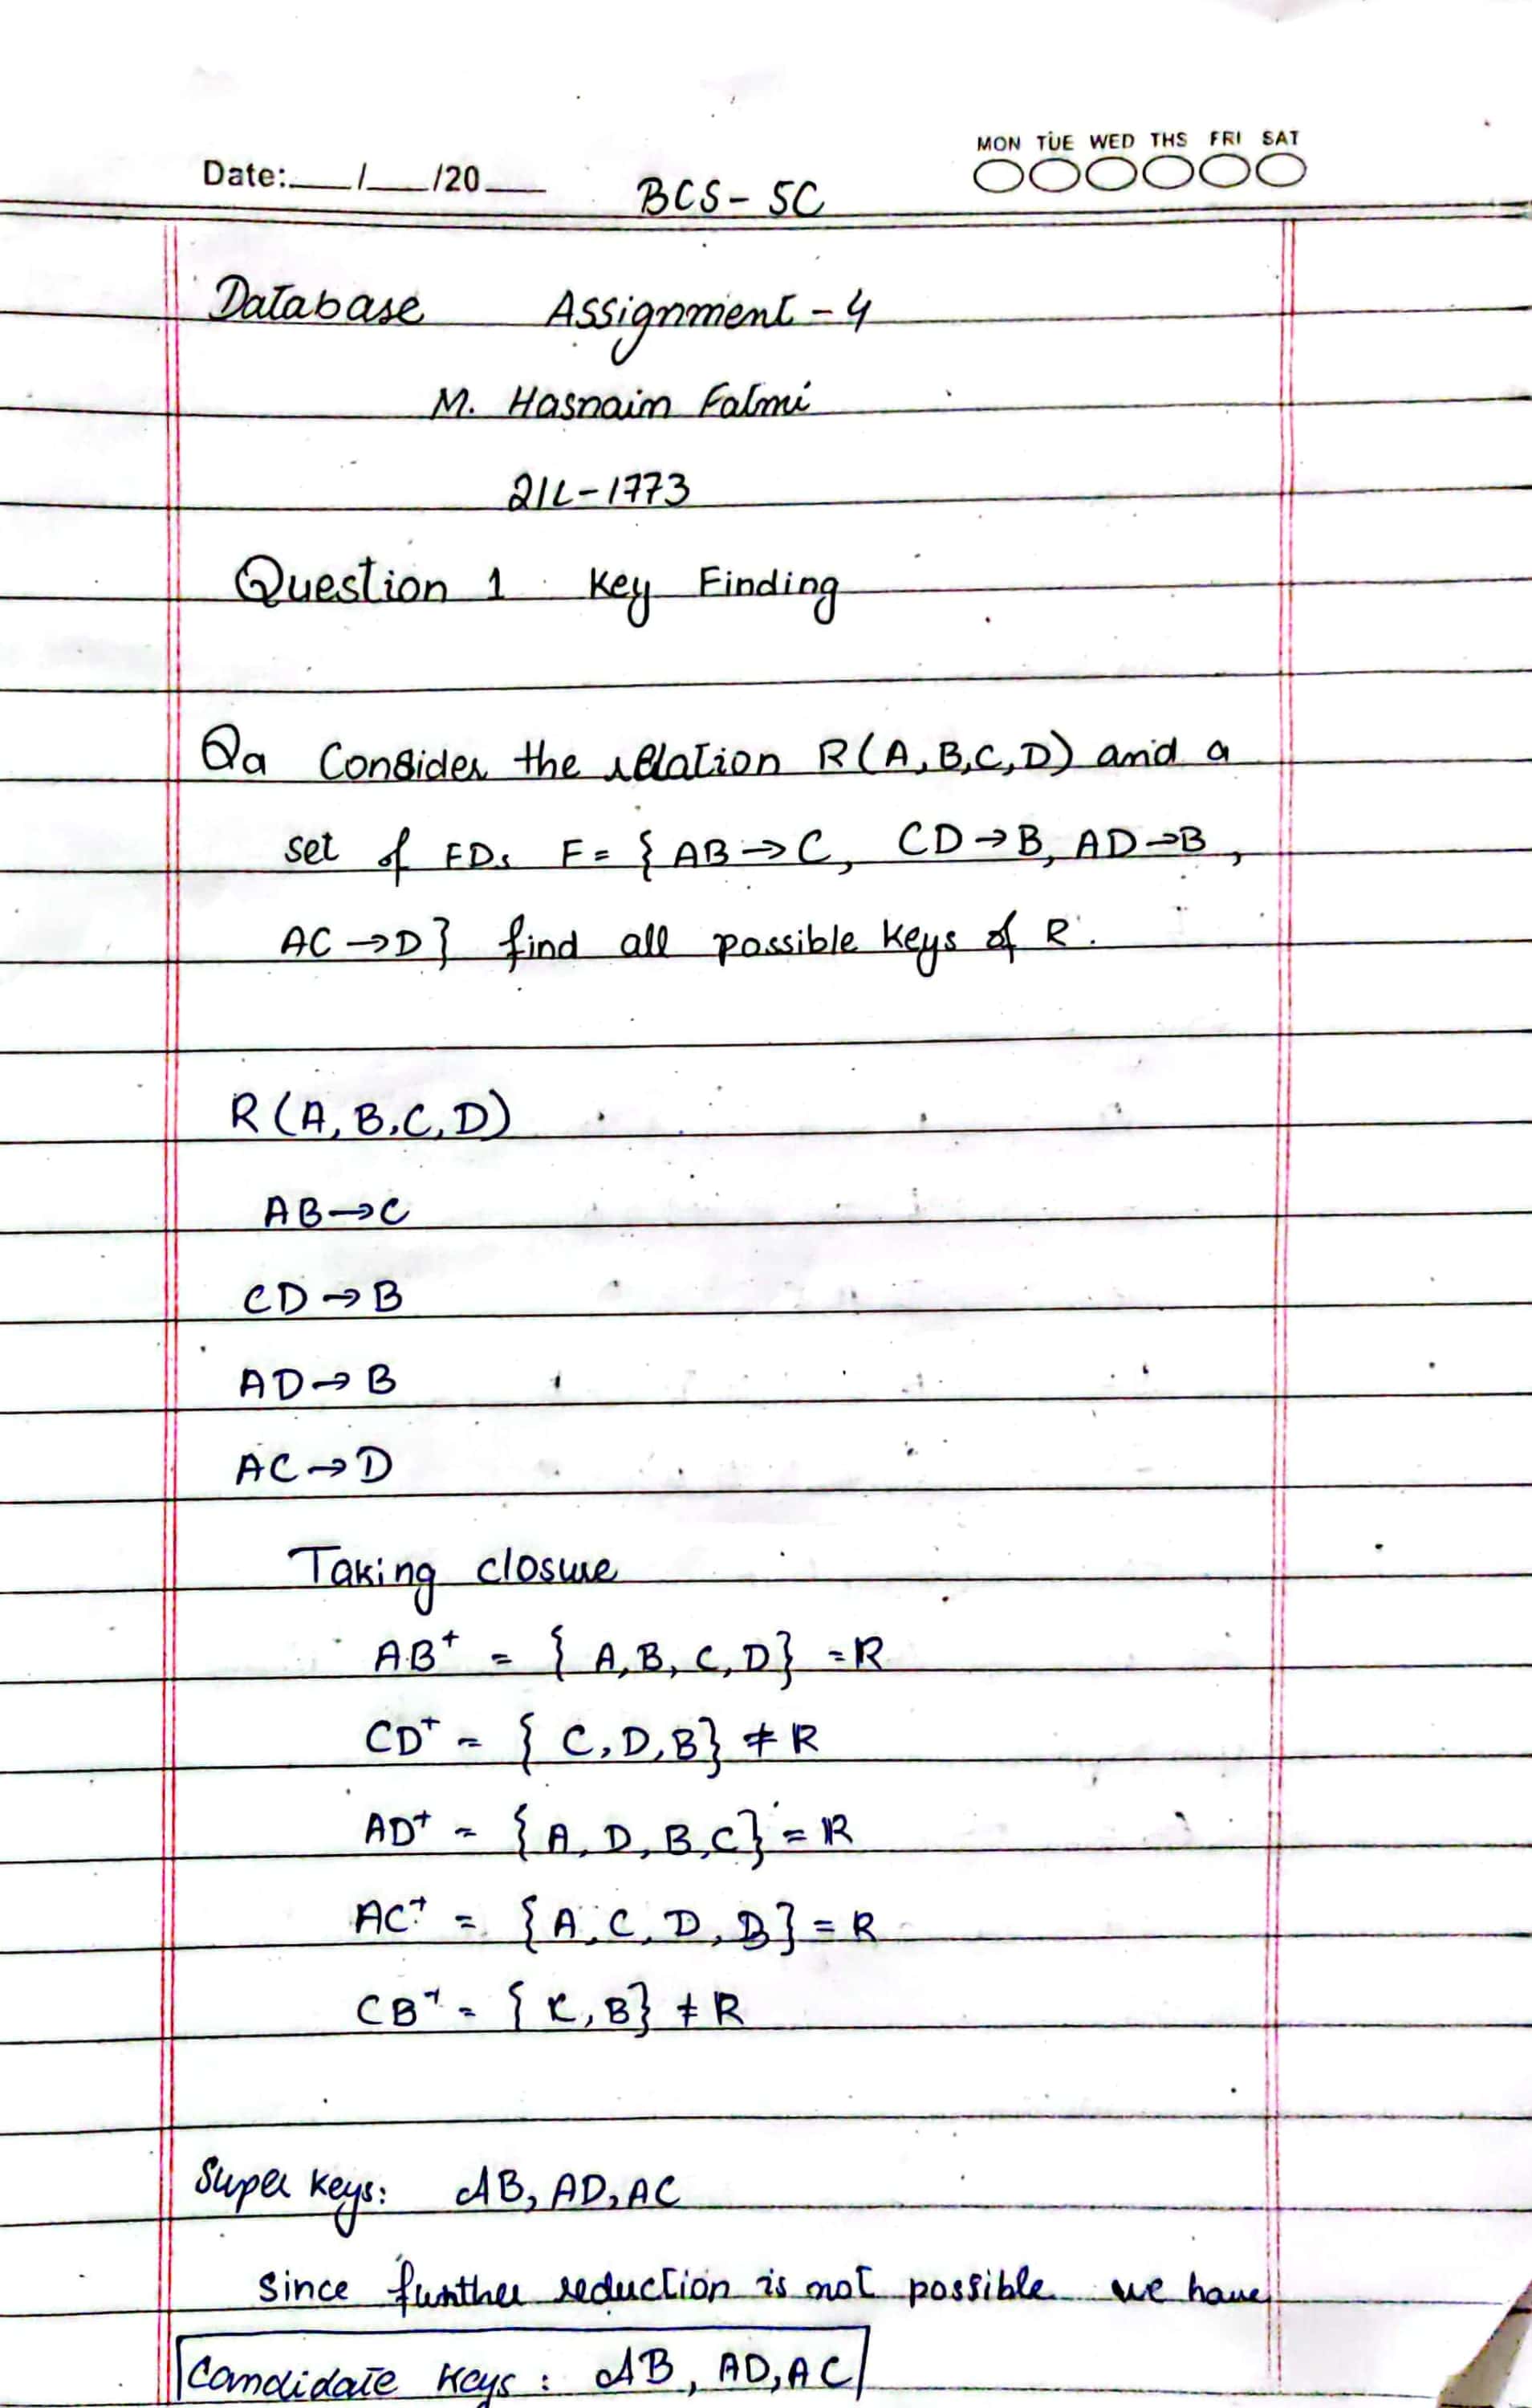 MON TUE WED THS FRI SAT
Date:___/___/20___
BCS - 5C
Database Assignment - 4
M. Hasnain Fatmi
21L-1773
Question 1 Key Finding
Qa Consider the relation R(A,B,C,D) and a
set of FDs F = { AB → C, CD → B, AD → B,
AC → D} find all possible keys of R.
R (A, B, C, D)
AB → C
CD → B
AD → B
AC → D
Taking closure
AB⁺ = { A, B, C, D} = R
CD⁺ = { C, D, B} ≠ R
AD⁺ = { A, D, B, C} = R
AC⁺ = { A, C, D, B} = R
CB⁺ = { C, B} ≠ R
Super keys: AB, AD, AC
Since further reduction is not possible we have
Candidate Keys : AB, AD, AC